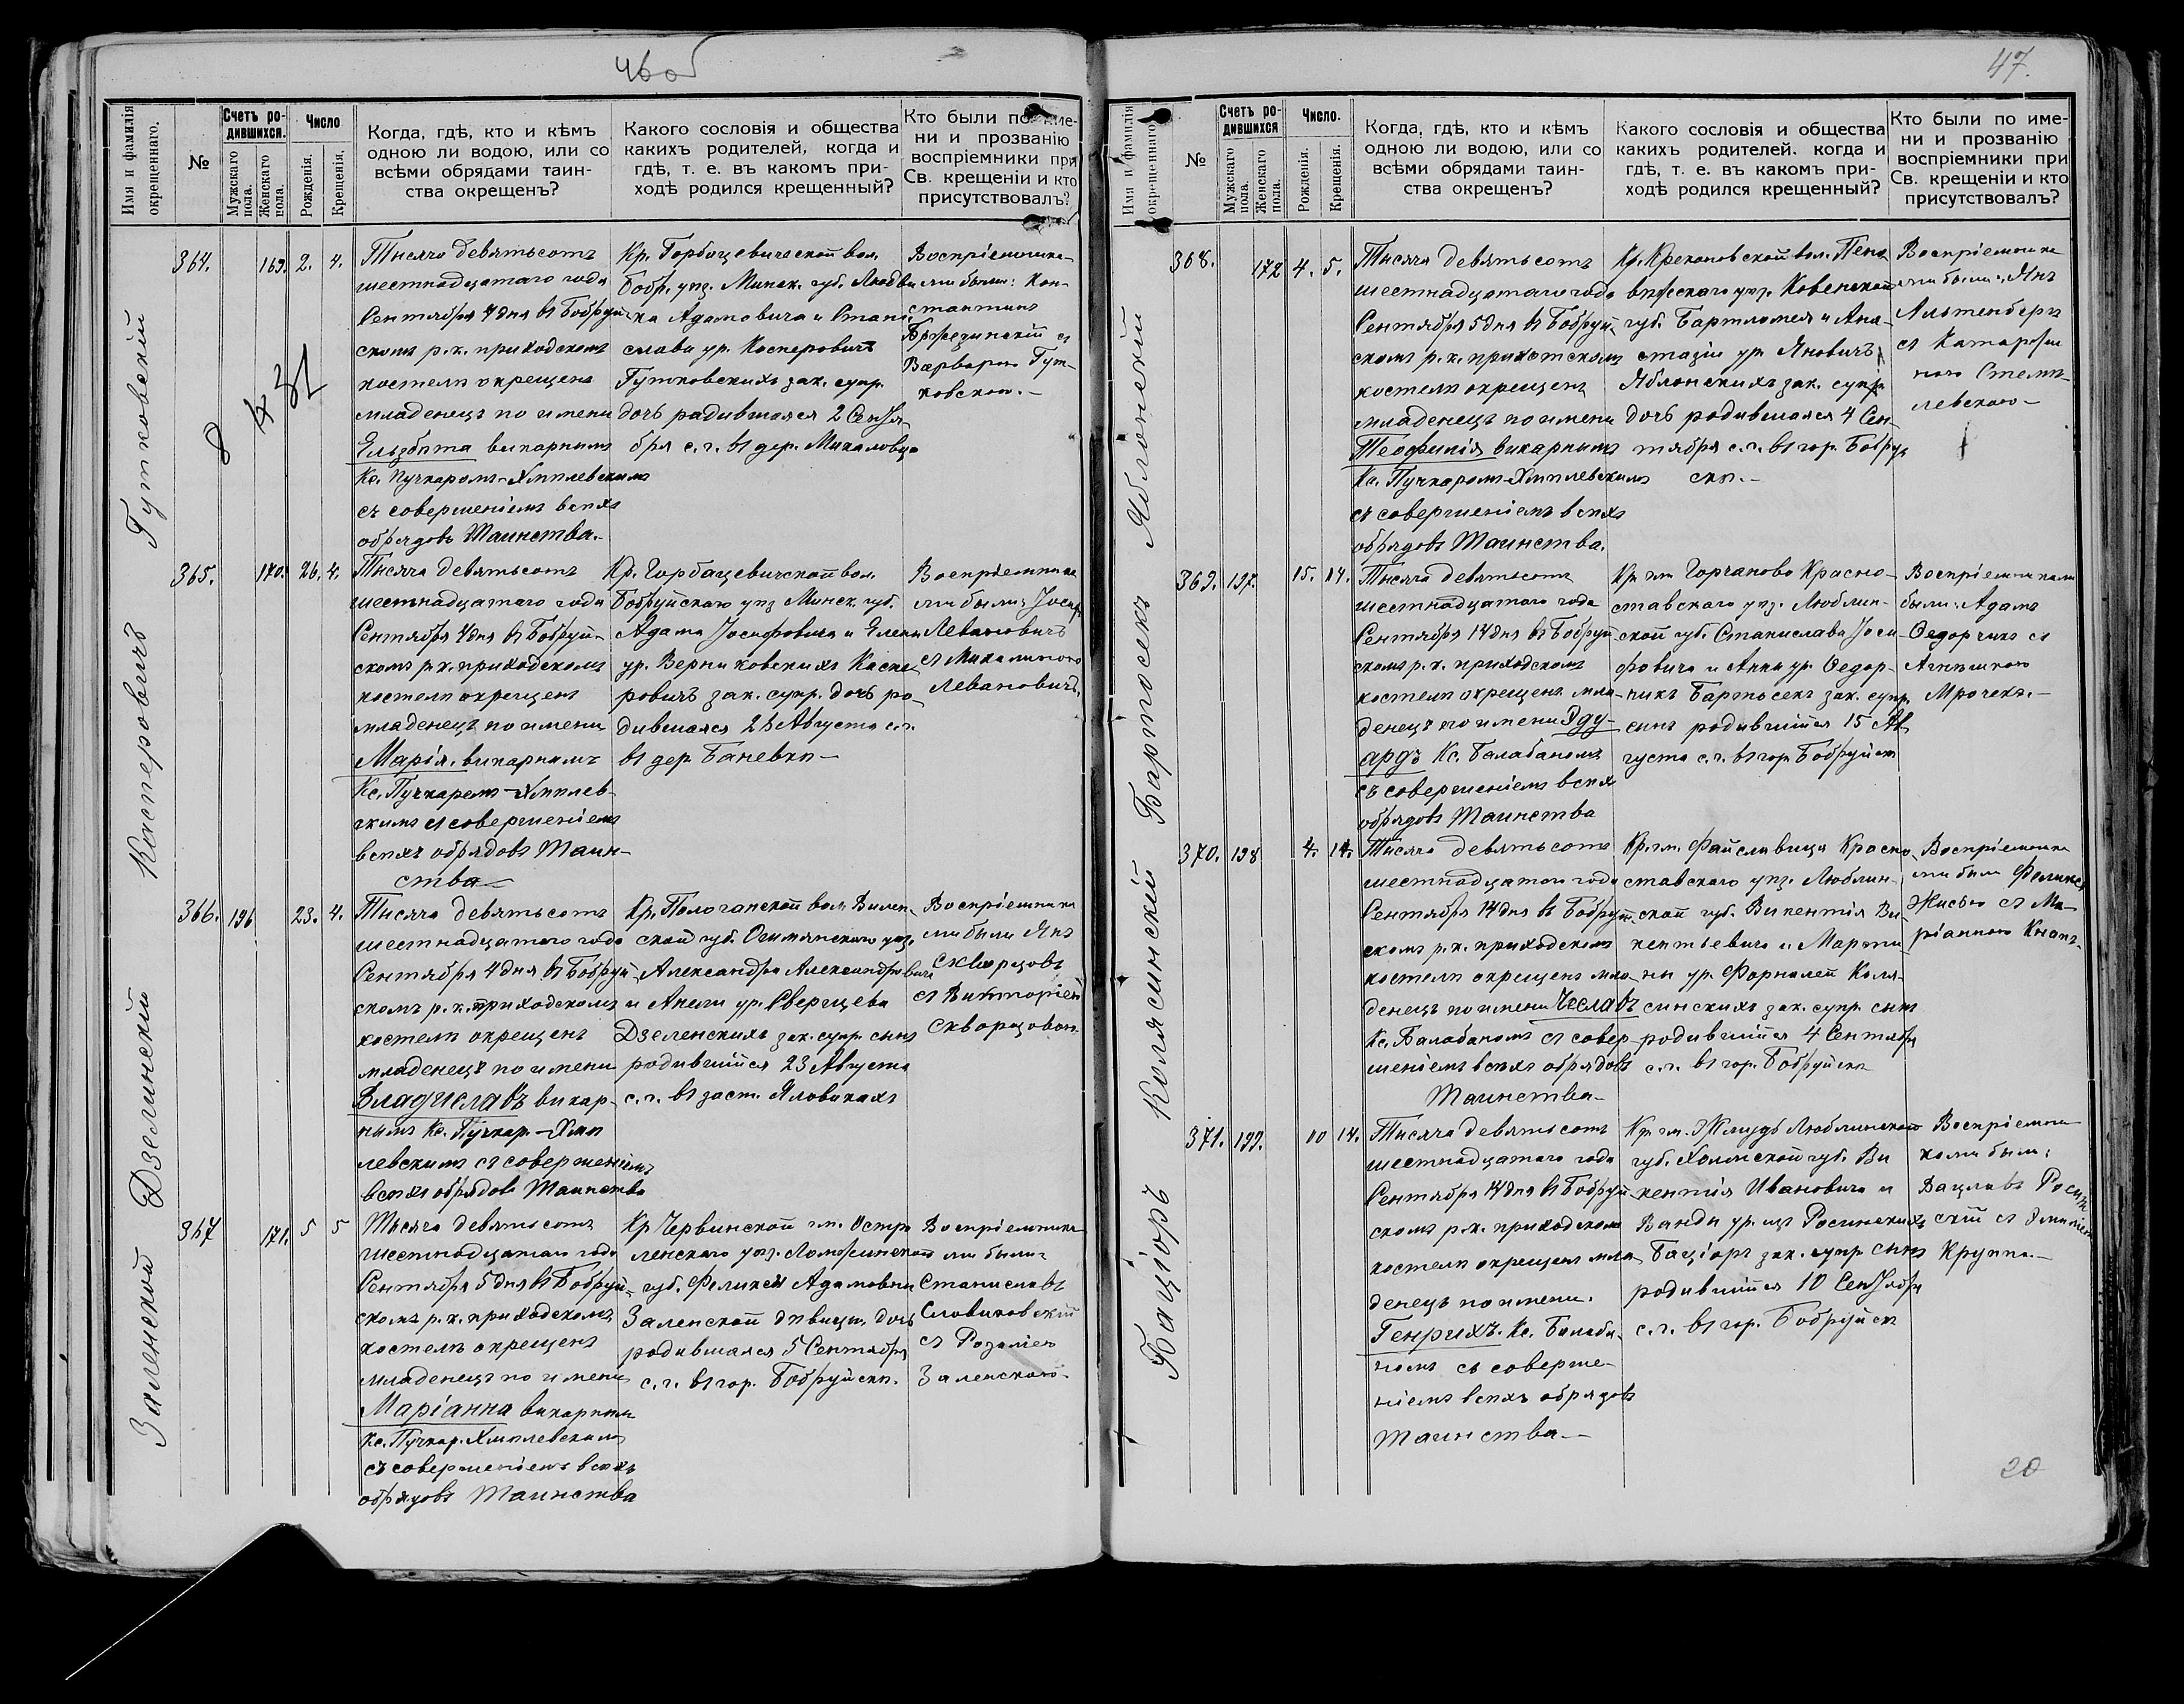 46 об
Имя и фамилія окрещеннаго.
№
Счетъ ро-
дившихся.
Мужскаго пола.
Женскаго пола.
Число
Рожденія.
Крещенія.
Когда, гдѣ, кто и кѣмъ
одною ли водою, или со
всѣми обрядами таин-
ства окрещенъ?
Какого сословія и общества
какихъ родителей, когда и
гдѣ, т. е. въ какомъ при-
ходѣ родился крещенный?
Кто были по име-
ни и прозванію
воспріемники при
Св. крещеніи и кто
присутствовалъ?
Гутковскій
364.
169. 2. 4.
Тысяча девятьсотъ
шестнадцатаго года
Сентября 4 дня въ Бобруй-
скомъ р.к. приходскомъ
костелѣ окрещенъ
младенецъ по имени
Ельзбѣта викарнымъ
Кс. Пучкаромъ-Хмѣлевскимъ
съ совершеніемъ всѣхъ
обрядовъ Таинства.
Кр. Горбацевичской вол.
Бобр. уѣз. Минск. губ. Людви
ка Адамовича и Стани
славы ур. Касперовичъ
Гутковскихъ зак. супр.
дочь радившаяся 2 Сентя
бря с.г. въ дер. Михаловцо
Воспріемника-
ми были: Кон-
стантинъ
Бржезинскій съ
Варварою Гут-
ковскою.-
Касперовичъ
365.
170. 26. 4.
Тысяча девятьсотъ
шестнадцатаго года
Сентября 4 дня въ Бобруй-
скомъ р.к. приходскомъ
костелѣ окрещенъ
младенецъ по имени
Марія. викарнымъ
Кс. Пучкаремъ-Хмѣлев-
скимъ съ совершеніемъ
всѣхъ обрядовъ Таин-
ства-
Кр. Горбацевичской вол.
Бобруйскаго уѣз Минск. губ.
Адама Іосифовича и Елены
ур. Верниковскихъ Каспе
ровичъ зак. супр. дочь ро-
дившаяся 26 Августа с.г.
въ дер. Баневкѣ-
Воспріемника
ми были: Іосифъ
Левановичъ
съ Михалиною
Левановичъ.
Дзелинскій
366. 196 23. 4.
Тысяча девятьсотъ
шестнадцатаго года
Сентября 4 дня въ Бобруй
скомъ р.к. приходскомъ
костелѣ окрещенъ
младенецъ по имени
Владиславъ викар-
нымъ Кс. Пучкар.-Хмѣ
левскимъ съ совершеніемъ
всѣхъ обрядовъ Таинства
Кр. Полочанской вол. Вилен-
ской губ. Ошмянскаго уѣз.
Александра Александровича
и Анели ур. Сверщева
Дзеленскихъ зак. супр. сынъ
родившійся 23 Августа
с.г. въ заст. Яловикахъ
Воспріемника
ми были Янъ
Скворцовъ
съ Викторіей
Скворцовою.
Заленской
367 171. 5 5
Тысяча девятьсотъ
шестнадцатаго года
Сентября 5 дня въ Бобруй
скомъ р.к. приходскомъ
костелѣ окрещенъ
младенецъ по имени
Маріанна викарнымъ
Кс. Пучкар. Хмѣлевскимъ
съ совершеніемъ всѣхъ
обрядовъ Таинства
Кр Червинской гм. Остро
ленскаго уѣз. Ломжинской
губ. Феликсы Адамовны
Заленской дѣвицы дочь
родившаяся 5 Сентября
с.г. въ гор. Бобруйскѣ.
Воспріемника
ми были
Станиславъ
Словиковскій
съ Розаліею
Заленскою-
47.
Имя и фамилія окрещеннаго.
№
Счетъ ро-
дившихся
Мужскаго пола.
Женскаго пола.
Число.
Рожденія.
Крещенія.
Когда, гдѣ, кто и кѣмъ
одною ли водою, или со
всѣми обрядами таин-
ства окрещенъ?
Какого сословія и общества
какихъ родителей. когда и
гдѣ, т. е. въ какомъ при-
ходѣ родился крещенный?
Кто были по име-
ни и прозванію
воспріемники при
Св. крещеніи и кто
присутствовалъ?
Яблонскій
368. 172 4. 5.
Тысяча девятьсотъ
шестнадцатаго года
Сентября 5 дня въ Бобруй
скомъ р.к. прихотскомъ
костелѣ окрещенъ
младенецъ по имени
Теофилія викарнымъ
Кс. Пучкаромъ-Хмѣлевскимъ
съ совершеніемъ всѣхъ
обрядовъ Таинства.
Кр. Крекановской вол. Поне
вѣжскаго уѣз. Ковенской
губ. Бартломея и Ана-
стазіи ур. Яновичъ
Яблонскихъ зак. супр.
дочь родившаяся 4 Сен-
тября с.г. въ гор. Бобруй
скѣ.-
Воспріемника
ми были: Янъ
Альтенбергъ
съ Катаржи
ною Стемп-
левскою-
Бартосекъ
369. 197. 15. 14.
Тысяча девятьсотъ
шестнадцатаго года
Сентября 14 дня въ Бобруй
скомъ р.к. приходскомъ
костелѣ окрещенъ мла-
денецъ по имени Эду-
ардъ Кс. Балабаномъ
съ совершеніемъ всѣх
обрядовъ Таинства
Кр. гм Горчаково Красно-
ставскаго уѣз. Люблин-
ской губ. Станислава Іоси-
фовича и Анны ур. Федор-
чикъ Бартосекъ зак. супр.
сынъ родившійся 15 Ав
густа с.г. въ гор. Бобруйскѣ
Воспріемниками
были: Адамъ
Федорчикъ съ
Агнѣшкою
Мрочекъ.-
Колясинскій
370. 198 4. 14.
Тысяча девятьсотъ
шестнадцатаго года
Сентября 14 дня въ Бобруй-
скомъ р.к. приходскомъ
костелѣ окрещенъ мла-
денецъ по имени Чеславъ
Кс. Балабаномъ съ совер-
шеніемъ всѣхъ обрядовъ
Таинства-
Кр. гм. Файславица Красно
ставскаго уѣз. Люблин-
ской губ. Викентія Ви-
кентьевича и Марти
ны ур. Форналей Коля-
синскихъ зак. супр. сынъ
родившійся 4 Сентября
с.г. въ гор. Бобруйскѣ
Воспріемника
ми были Феликсъ
Жисько съ Ма-
ріанною Кнапъ-
Баціоръ
371. 199. 10 14.
Тысяча девятьсотъ
шестнадцатаго года
Сентября 14 дня въ Бобруй
скомъ р.к. приходскомъ
костелѣ окрещенъ мла-
денецъ по имени.
Генрихъ. Кс. Балаба-
номъ съ соверше-
ніемъ всѣхъ обрядовъ
Таинства.-
Кр. гм. Жмудь Люблинской
губ. Холмской губ. Ви
кентія Ивановича и
Ванды ур. изъ Росинскихъ
Баціоръ зак. супр сынъ
родившійся 10 Сентября
с.г. въ гор. Бобруйскѣ
Воспріемни
ками были:
Вацлавъ Росин
скій съ Эмиліею
Круппа.-
20